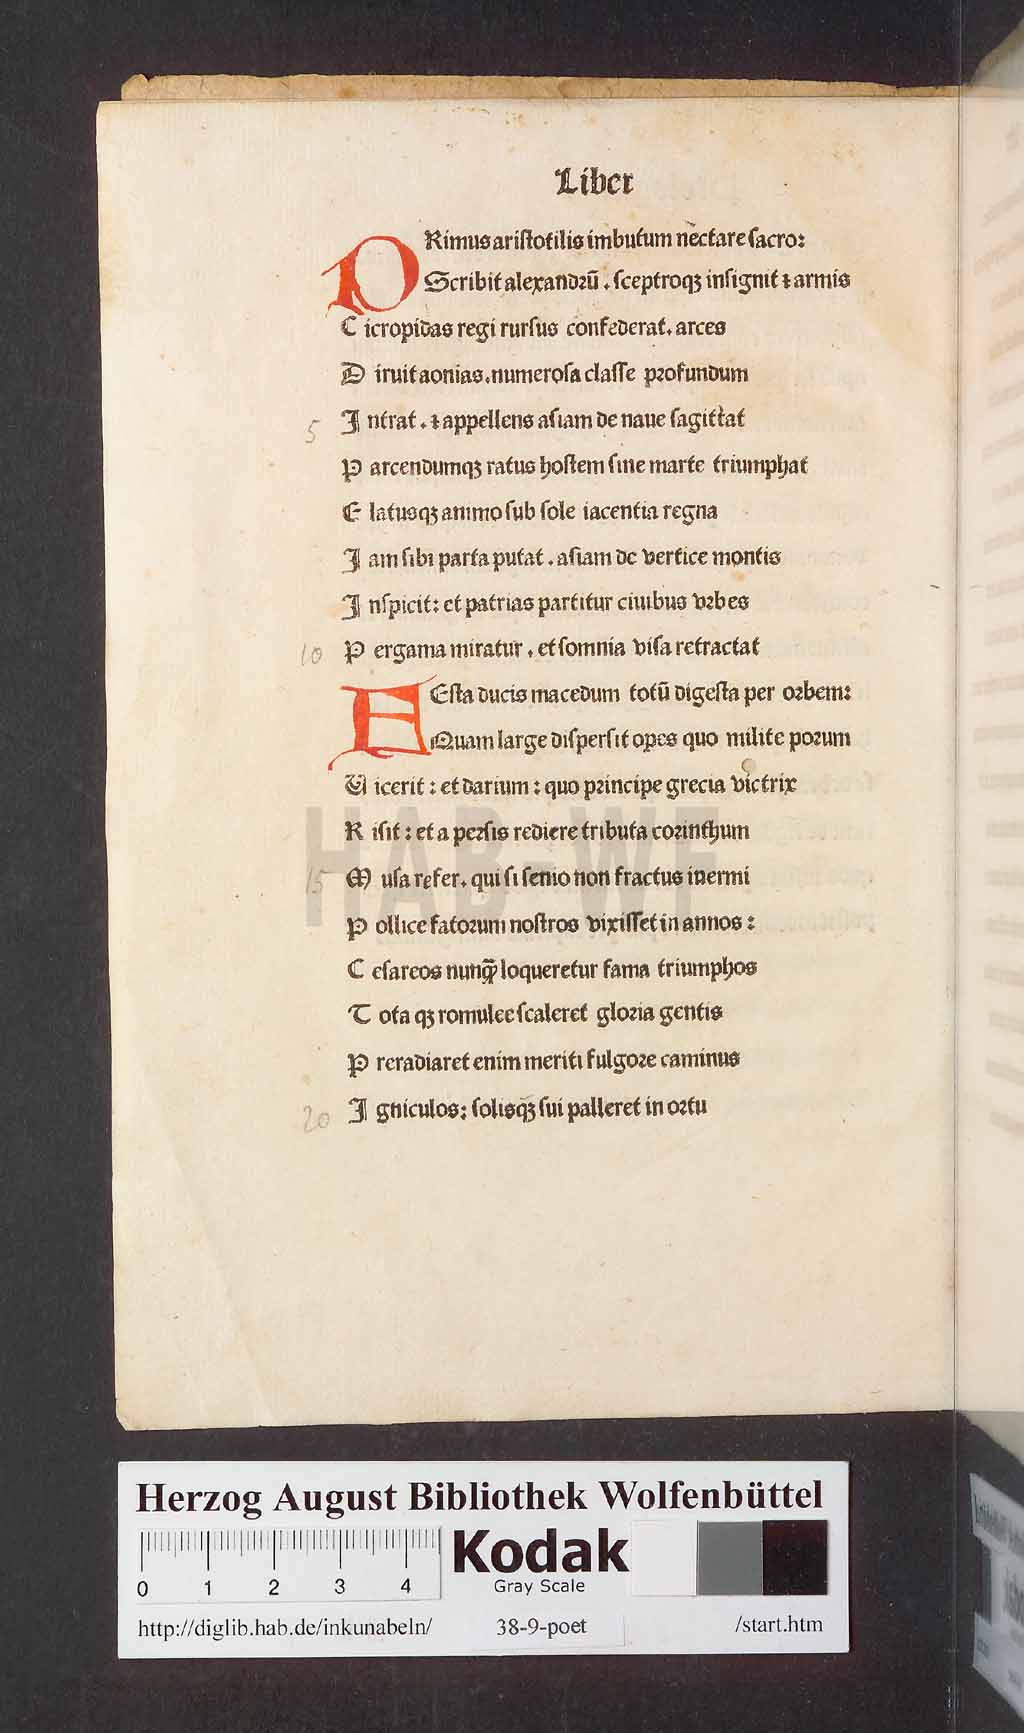 Liber
PRimus aristotilis imbutum nectare sacro:
Scribit alexandrū . sceptroqꝫ insignit ⁊ armis
C icropidas regi rursus confederat. arces
D iruit aonias. numerosa classe profundum
5 I ntrat . ⁊ appellens asiam de naue sagittat
P arcendumqꝫ ratus hostem sine marte triumphat
E latusqꝫ animo sub sole iacentia regna
I am sibi parta putat . asiam de vertice montis
I nspicit: et patrias partitur ciuibus vrbes
10 P ergama miratur . et somnia visa retractat
GEsta ducis macedum totū digesta per orbem:
Quam large dispersit opes quo milite porum
V icerit : et darium : quo principe grecia victrix
R isit : et a persis rediere tributa corinthum
15 M usa refer. qui si senio non fractus inermi
P ollice fatorum nostros vixisset in annos :
C esareos nunqꝫ̄ loqueretur fama triumphos
T ota qꝫ romulee scaleret gloria gentis
P reradiaret enim meriti fulgore caminus
20 I gniculos: solisqꝫ sui palleret in ortu
HAB-WF
Herzog August Bibliothek Wolfenbüttel
Kodak
Gray Scale
0 1 2 3 4
http://diglib.hab.de/inkunabeln/ 38-9-poet /start.htm